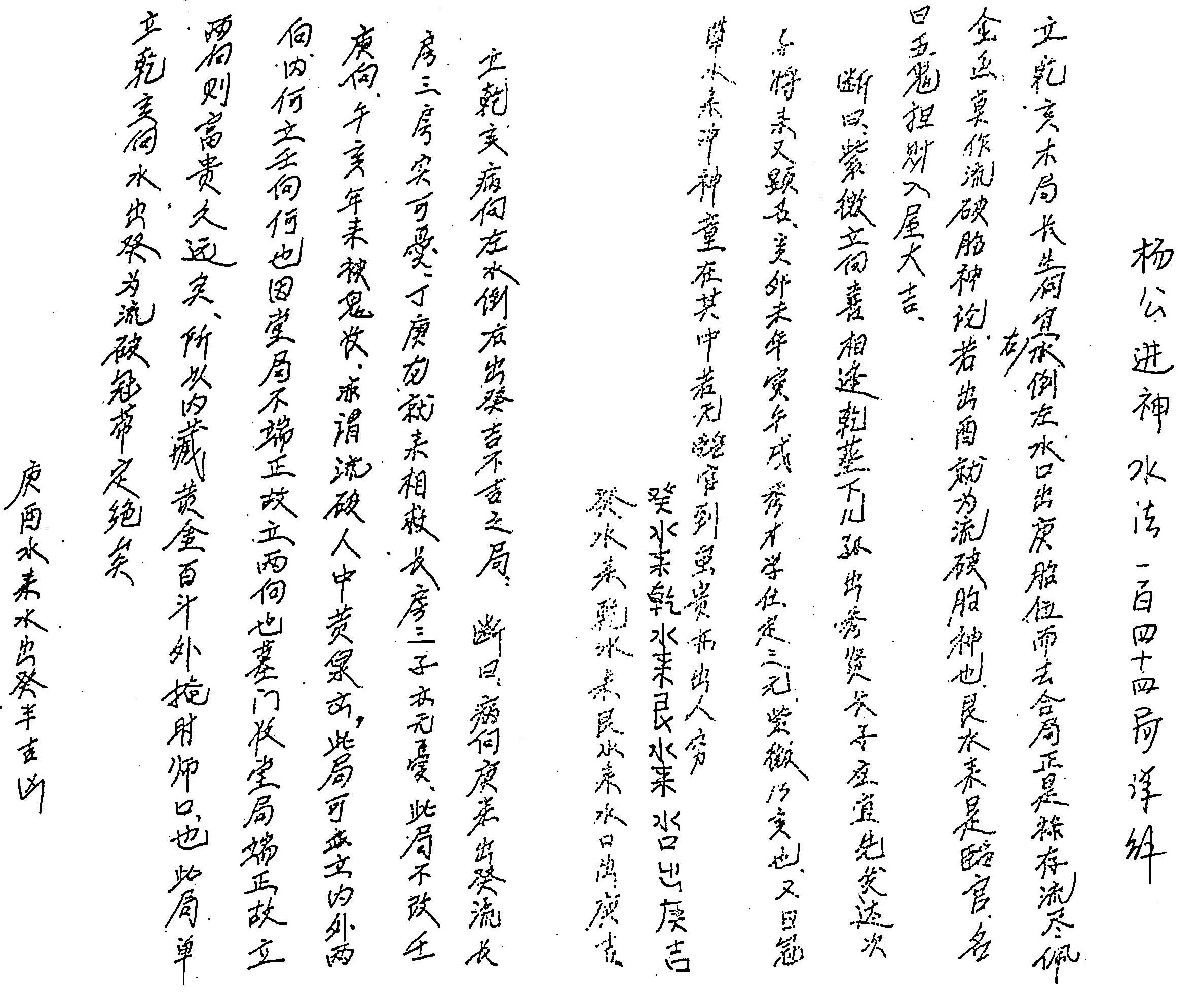 杨公进神水法一百四十四局详解
立乾亥木局长生向宜右水倒左水口出庚胎位而去合局正是禄存流尽佩
金鱼莫作流破胎神论若出酉就为流破胎神也、艮水来是临官、名
曰五鬼担财入屋大吉、
断曰、紫微立向喜相逢乾葬下儿孙出秀贤长子应宜先发达次
子将来又显名、亥卯未年寅午戌秀才学仕定三元、紫微乃亥也、又曰冠
带水来冲神童在其中若无砂官到虽贵亦出人穷
癸水来乾水来艮水来水口出庚吉
癸水来乾水来艮水来水口出庚吉、
立乾亥病向左水倒右出癸吉不吉之局、断曰、病向庚来出癸流长
房三房实可忧、丁庚向就来相救长房三子亦无忧、此局不改壬
庚向、午亥年来被鬼收、求谓流破人中黄泉亥，此局可立内外两
向内向立壬向何也因堂局不端正故立两向也墓门收堂局端正故立
两向则富贵久远矣、所以内藏黄金百斗外掩时师口、也此局单
立乾亥向水出癸为流破冠带定绝矣
庚酉水来水出癸半吉凶